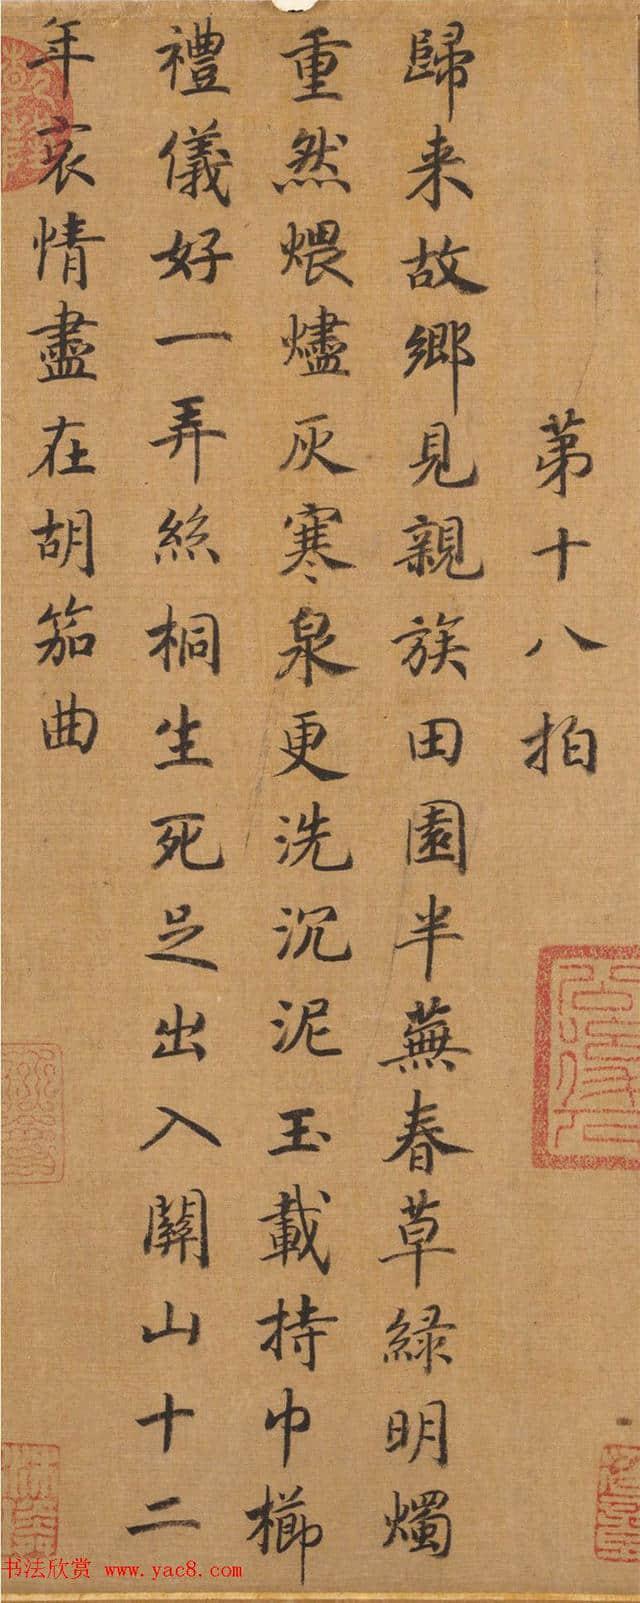 第十八拍
歸来故鄉見親族田園半蕪春草緑明燭
重然煨燼灰寒泉更洗沉泥玉載持巾櫛
禮儀好一弄絲桐生死足出入關山十二
年哀情盡在胡笳曲
书法欣赏 www.yac8.com